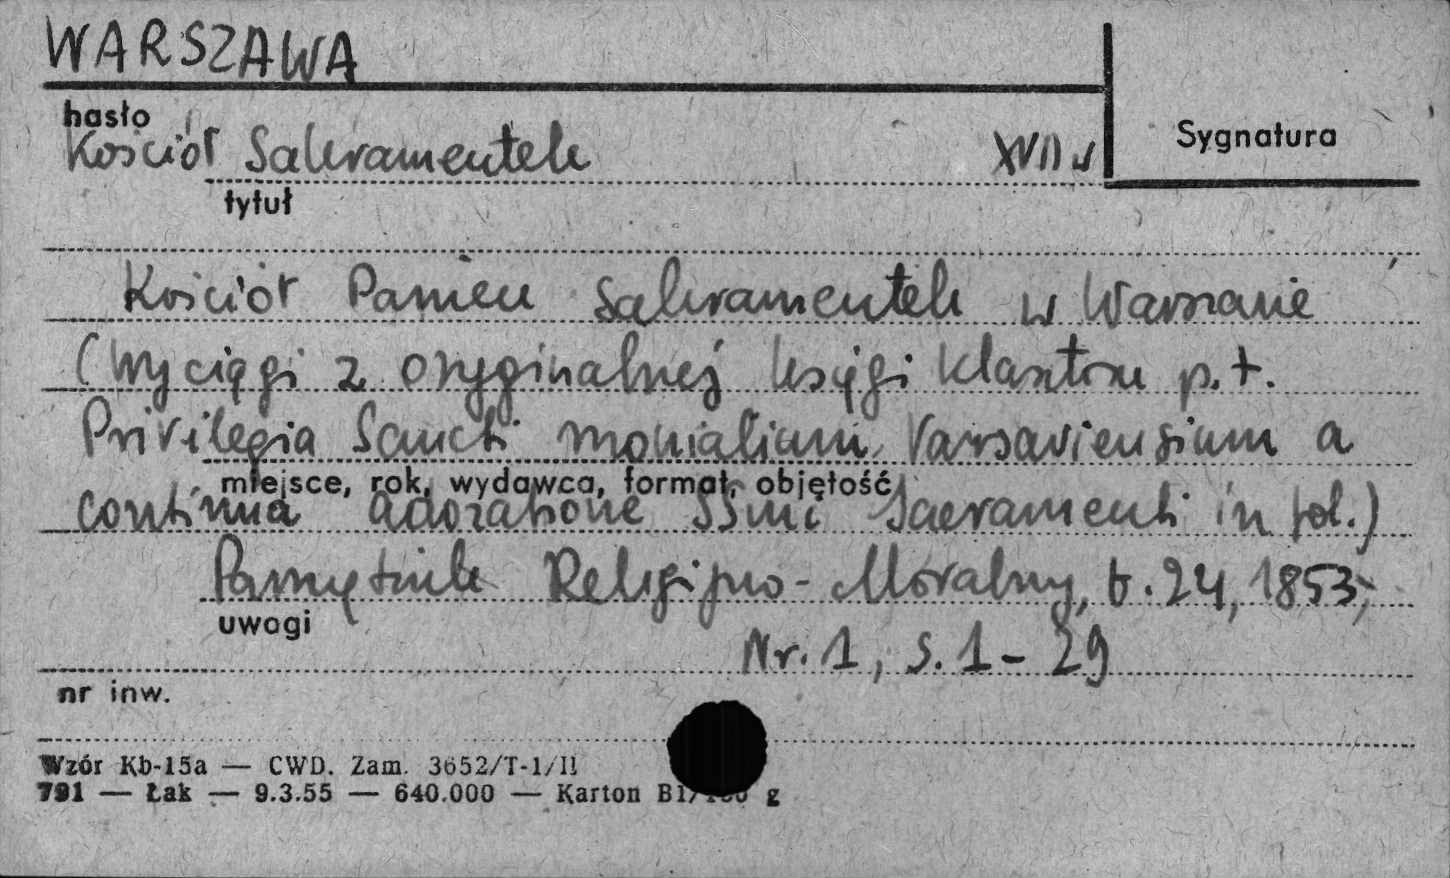 WARSZAWA
hasło
Kościół Sakramentek XVII w
Sygnatura
tytuł
Kościół Panien Sakramentek w Warszawie
(Wyciągi z oryginalnej księgi klasztoru p.t.
Privilegia Sancti monialium Varsaviensium a
miejsce, rok, wydawca, format, objętość
continua adoratione SSmi Sacramenti in fol.)
Pamiętnik Religijno-Moralny, t. 24, 1853,
uwagi
Nr. 1, s. 1-29
nr inw.
Wzór Kb-15a — CWD. Zam. 3652/T-1/II
791 — Łak — 9.3.55 — 640.000 — Karton B1/ g